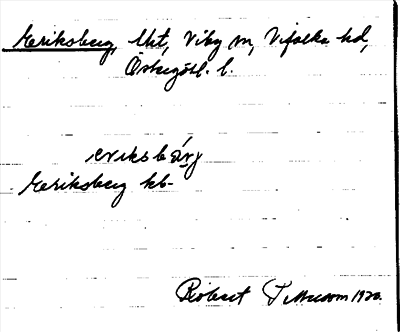 Eriksberg, lht, Viby sn, Vifolka hd,
Östergötl. l.
eriksbärj
Eriksberg kb-
Robert 1920.